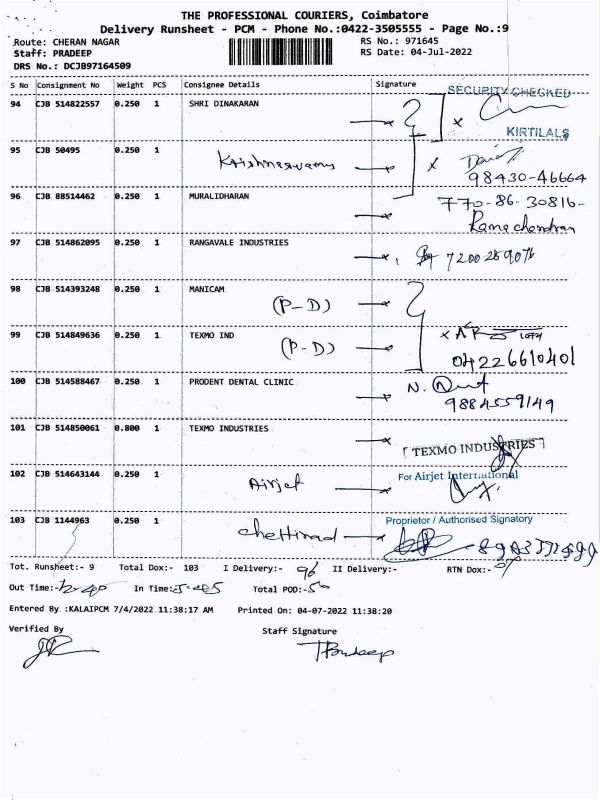 THE PROFESSIONAL COURIERS, Coimbatore
Delivery Runsheet - PCM - Phone No.:0422-3505555 - Page No.:9
Route: CHERAN NAGAR RS No.: 971645
Staff: PRADEEP RS Date: 04-Jul-2022
DRS No.: DCJB97164509
S No Consignment No Weight PCS Consignee Details Signature
SECURITY CHECKED
94 CJB 514822557 0.250 1 SHRI DINAKARAN
KIRTILALS
95 CJB 50495 0.250 1 Krishnaswamy
98430-46664
96 CJB 88514462 0.250 1 MURALIDHARAN 770-86-30816-
Ramachandran
97 CJB 514862095 0.250 1 RANGAVALE INDUSTRIES
7200259076
98 CJB 514393248 0.250 1 MANICAM
(P-D)
99 CJB 514849636 0.250 1 TEXMO IND
(P-D) 04226610401
100 CJB 514588467 0.250 1 PRODENT DENTAL CLINIC
9884559149
101 CJB 514850061 0.800 1 TEXMO INDUSTRIES
TEXMO INDUSTRIES
102 CJB 514643144 0.250 1 Airjet For Airjet International
103 CJB 1144963 0.250 1 Chettinad Proprietor / Authorised Signatory
Tot. Runsheet:- 9 Total Dox:- 103 I Delivery:- 96 II Delivery:- RTN Dox:- 07
Out Time:- 12-40 In Time:- Total POD:- 50
Entered By :KALAIPCM 7/4/2022 11:38:17 AM Printed On: 04-07-2022 11:38:20
Verified By Staff Signature
TPradeep